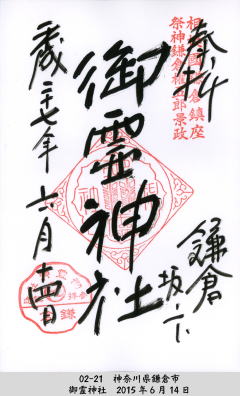 奉拝
相模國鎌倉鎮座
祭神鎌倉権五郎景政
鎌倉
坂ノ下
御霊神社
平成二十七年六月十四日
02-21 神奈川県鎌倉市
御霊神社 2015年6月14日